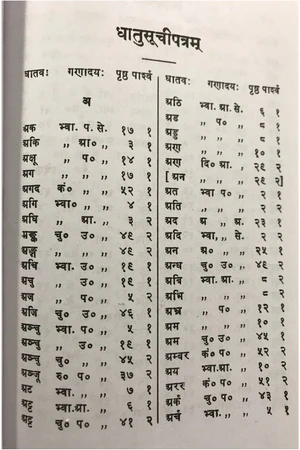 धातुसूचीपत्रम्
धातवः गणादयः पृष्ठ पार्श्व
अ
अक भ्वा. प. से. १७ १
अकि ,, आ० ,, ३ १
अक्षू ,, प० ,, १४ १
अग ,, ,, ,, १७ १
अगद कं० ,, ,, ५२ १
अगि भ्वा० ,, ,, ४ १
अघि ,, आ. ,, ३ २
अङ्क चु० उ० ,, ४९ २
अङ्ग ,, ,, ,, ४९ २
अचि भ्वा. उ. ,, १९ १
अचु ,, उ० ,, १९ १
अज ,, प० ,, ५ २
अजि चु० उ० ,, ४६ १
अञ्चु भ्वा. प. ,, ५ १
अञ्चु ,, उ० ,, १९ १
अञ्चु चु० ,, ,, ४५ २
अञ्जू रु० प० ,, ३७ २
अट भ्वा. ,, ,, ७ १
अट्ट भ्वा.आ. ,, ६ १
अट्ट चु० प० ,, ४१ २
धातवः गणादयः पृष्ठ पार्श्व
अठि भ्वा. आ. से. ६ १
अड ,, प० ,, ८ १
अड्ड ,, ,, ,, ८ १
अण ,, ,, ,, १० १
अण दि० आ. ,, २९ २
[ अन ,, ,, ,, २९ २]
अत भ्वा प० ,, २ १
अति ,, ,, ,, २ २
अद अ ,, अ. २३ १
अदि भ्वा. ,, से. २ २
अन अ० ,, ,, २५ १
अन्ध चु० उ० ,, ४९ २
अबि भ्वा. आ. ,, ८ २
अभि ,, ,, ,, ८ २
अभ्र ,, प० ,, १२ १
अम ,, ,, ,, १० १
अम चु० उ० ,, ४५ १
अम्बर कं० प० ,, ५२ २
अय भ्वा. आ. ,, १० २
अरर कं० प० ,, ५१ २
अर्क चु० प० ,, ४३ १
अर्च भ्वा. ,, ,, ५ १